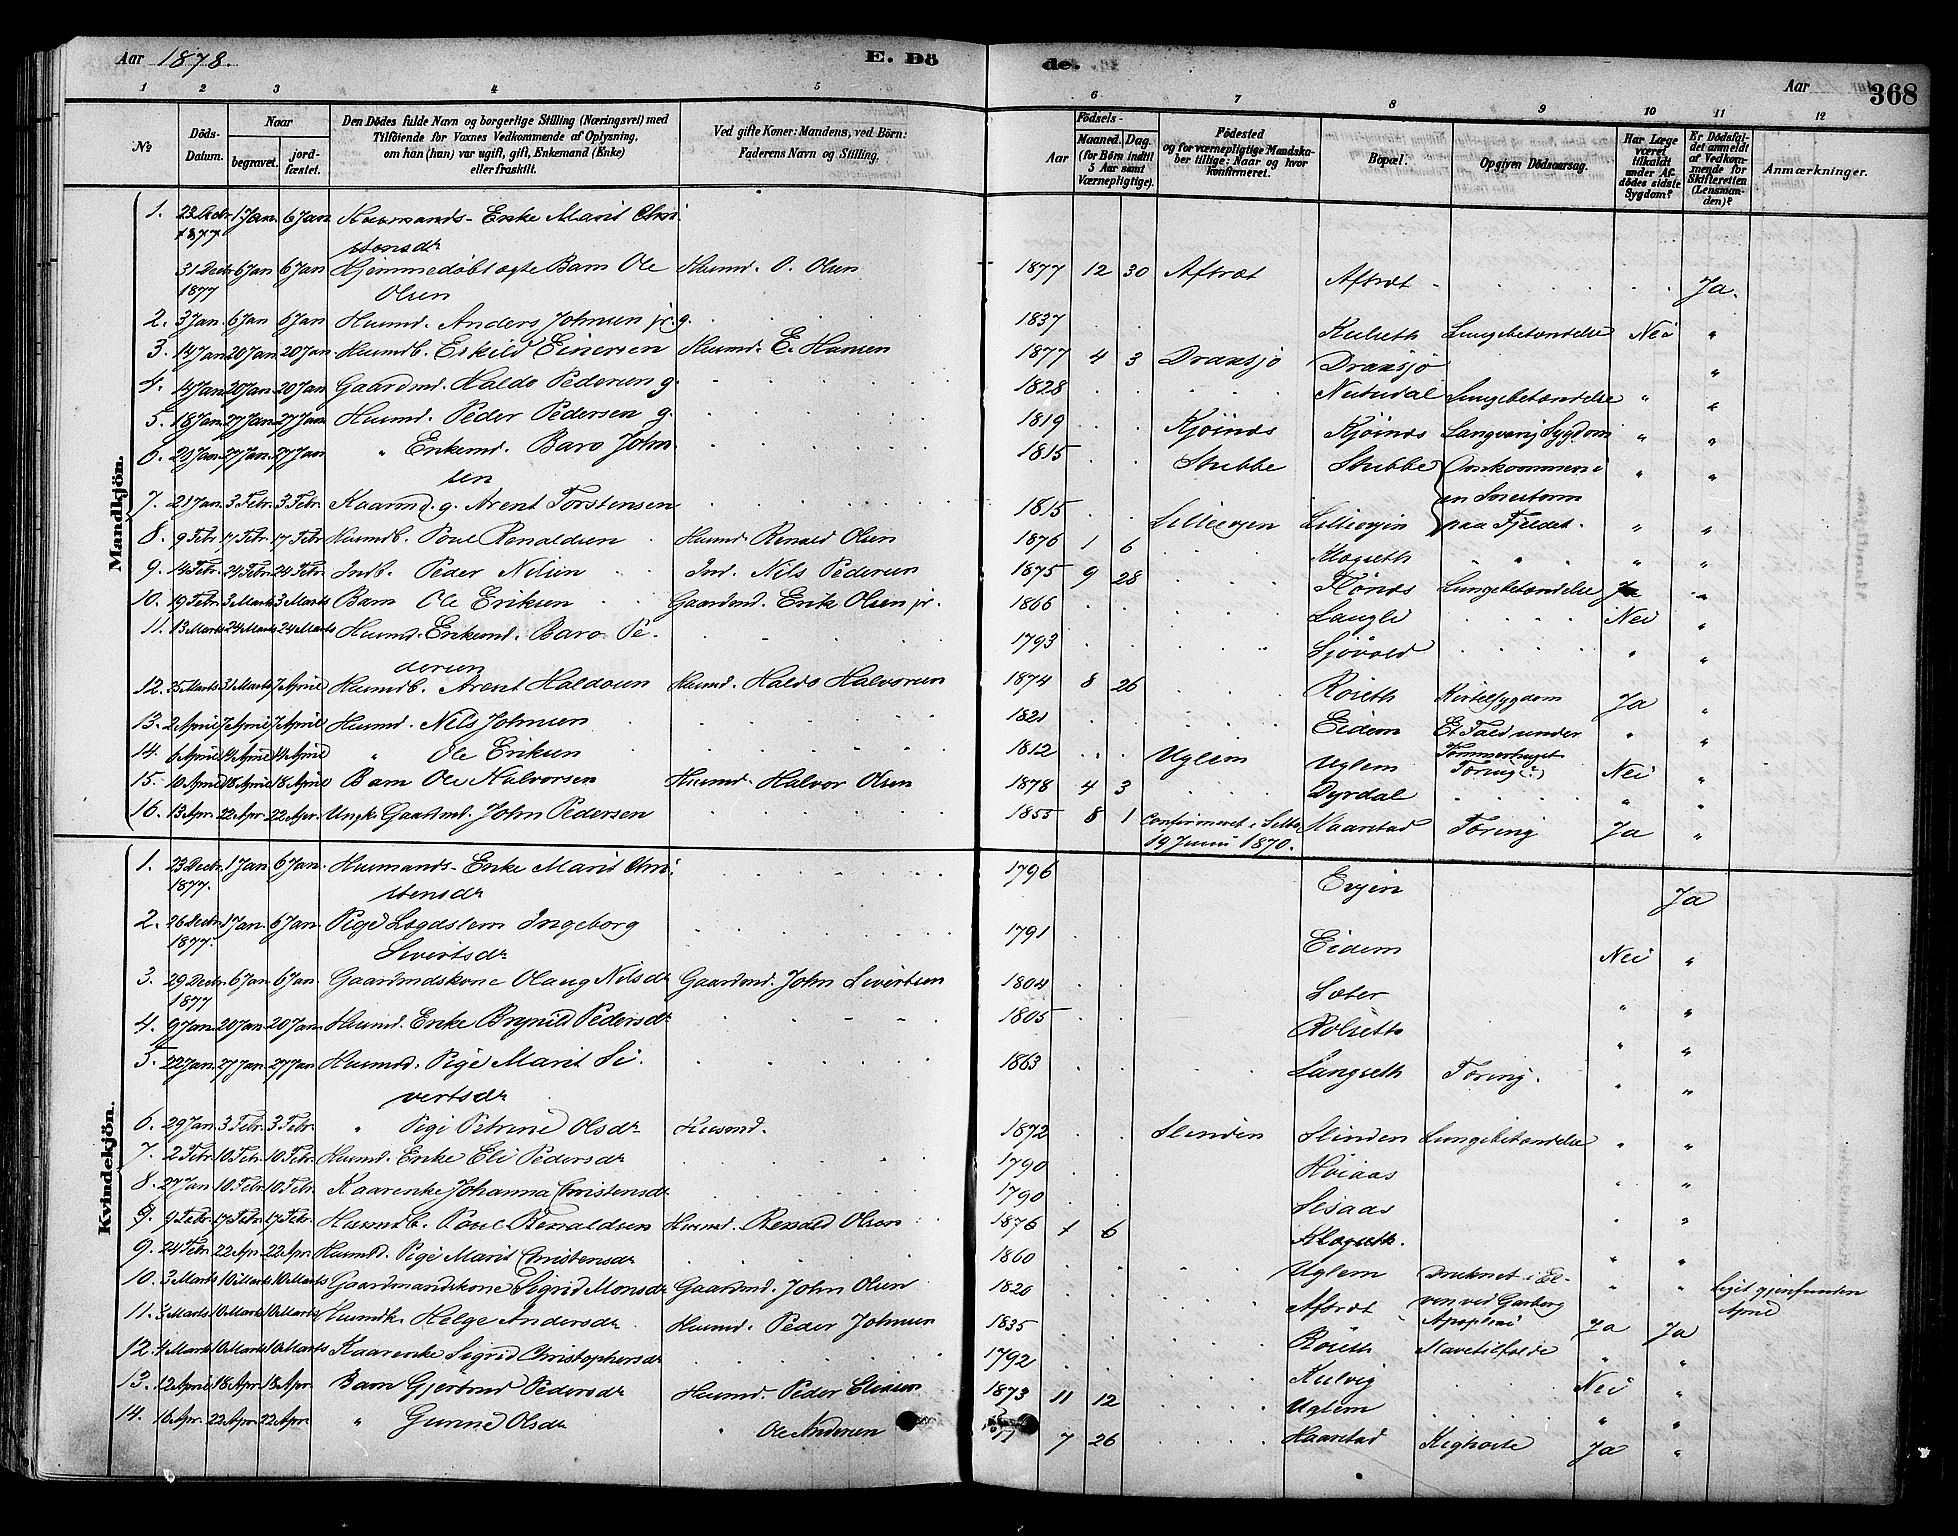 Aar 1878. E. Dö de. Aar 368
1 2 3 4 5 6 7 8 9 10 11 12
No Döds-Datum. Naar begravet. jordfæstet. Den Dödes fulde Navn og borgerlige Stilling (Næringsvei) med Tilföiende for Voxnes Vedkommende af Oplysning, om han (hun) var ugift, gift, Enkemand (Enke) eller fraskilt. Ved gifte Koner: Mandens, ved Börn: Faderens Navn og Stilling. Födsels- Aar Maaned. Dag. (for Börn indtil 5 Aar samt Værnepligtige). Födested og for værnepligtige Mandskaber tillige: Naar og hvor konfirmeret. Bopæl. Opgiven Dödsaarsag. Har Læge været tilkaldt under Afdödes sidste Sygdom? Er Dödsfaldet anmeldt af Vedkommende for Skifteretten (Lensmanden)? Anmærkninger.
Mandkjön.
1. 23 Decbr 1877 1 Jan 6 Jan Huusmands-Enke Marit Chri
stensdr
31 Decbr 1877 6 Jan 6 Jan Hjemmedøbt ægte Barn Ole Huusmd. O. Olsen 1877 12 30 Aftræt Aftræt Ja.
Olsen
2. 3 Jan. 6 Jan 6 Jan Huusmd. Anders Johnsen jr. g. 1837 Kulseth Lungebetændelse Nei "
3. 14 Jan 20 Jan 20 Jan Huusmdb. Eskild Einersen Huusmd. E. Hansen 1877 4 3 Draxsjø Draxsjø "
4. 14 Jan 20 Jan 20 Jan Gaardmd. Haldo Pedersen g. 1828 Lungebetændelse " "
5. 18 Jan 27 Jan 27 Jan Huusmd. Peder Pedersen g. 1819 Kjøsnæs Kjøsnæs Langvarig Sygdom " "
6. 20 Jan 27 Jan 27 Jan " Enkemd. Baro John 1815 Stubbe Stubbe Omkommen i " "
sen en Snestorm
7. 21 Jan 3 Febr. 3 Febr. Kaarmd. g. Arent Torstensen 1815 Lillievjen Lillievjen paa Fjeldet. " "
8. 9 Febr 17 Febr. 17 Febr. Huusmdb. Poul Renaldsen Huusmd. Renald Olsen 1876 1 6 Klogseth " "
9. 14 Febr. 24 Febr. 24 Febr. Indb. Peder Nilsen Ind. Nils Pedersen 1875 9 28 Flønæs Lungebetændelse Ja "
10. 19 Febr. 3 Marts 3 Marts Barn Ole Eriksen Gaardmd. Erik Olsen jr. 1866 Langli Nei "
11. 13 Marts 24 Marts 24 Marts Huusmd. Enkemd. Baro Pe- 1793 Sjøvold " "
dersen
12. 25 Marts 31 Marts 7 April Huusmdb. Arent Haldosen Huusmd. Haldo Halvorsen 1874 8 26 Roseth Kirtelsygdom Ja "
13. 2 April 7 April 7 April Huusmd. Nils Johnsen 1821 Eidem Et Fald under " "
14. 6 April 14 April 14 April " Ole Eriksen 1812 Uglem Uglem Tømmerhugst Tæring (?) Nei "
15. 10 April 18 April 18 April Barn Ole Halvorsen Huusmd Halvor Olsen 1878 4 3 Dyrdal " "
16. 13 Apr. 22 Apr. 22 Apr. Ungk. Gaardmd. John Pedersen 1855 8 1 Confirmeret i Selbo Naarstad Tæring Ja "
19 Juni 1870.
Kvindekjön.
1. 23 Decbr 1877. 1 Jan 6 Jan. Huusmands-Enke Marit Chri 1796 Evjen Ja
stensdr
2. 26 Decbr 1877. 1 Jan 6 Jan. Pige Lægdslem Ingeborg 1791 Eidem Nei "
Sivertsdr
3. 29 Decbr 1877 6 Jan 6 Jan. Gaardmdskone Olaug Nilsdr Gaardmd. John Sivertsen 1804 Sæter " "
4. 9 Jan 20 Jan 20 Jan. Huusmd. Enke Brynild Pedersdr 1805 Rolseth " "
5. 22 Jan. 27 Jan 27 Jan Huusmd. Pige Marit Si 1863 Langseth Tæring. " "
vertsdr
6. 29 Jan. 3 Febr. 3 Febr. " Pige Petrine Olsdr Huusmd. 1872 Slinden Slinden Lungebetændelse " "
7. 2 Febr 10 Febr. 10 Febr. Huusmd. Enke Eli Pedersdr 1790 Høiaas " "
8. 27 Jan 10 Febr. 10 Febr. Kaarenke Johanna Christensdr 1790 " "
9. 9 Febr. 17 Febr. 17 Febr. Huusmdb. Poul Renaldsen Huusmd. Renald Olsen 1876 1 6 Klogseth.
9. 24 Febr. 22 Apr. 22 Apr. Huusmd. Pige Marit Christensdr 1860 Uglem Druknet i El- " " Liget gjenfunden
10. 3 Marts 10 Marts 10 Marts Gaardmandskone Sigrid Monsdr Gaardmd. John Olsen 1820 Aftræt ven ved Garberg April
11. 3 Marts 10 Marts 10 Marts Huusmdk. Helge Andersdr Huusmd. Peder Johnsen 1835 Roseth Apoplexi Ja Ja
12. 4 Marts 10 Marts 10 Marts Kaarenke Sigrid Christophersdr 1792 Kulvig Mavetilfælde " "
13. 12 April 18 Apr. 18 Apr. Barn Gjertrud Pedersdr Huusmd. Peder Eliasen 1873 11 12 Uglem Nei "
14. 16 Apr. 22 Apr. 22 Apr. " Gurine Olsdr " Ole Andersen 1877 7 26 Haarstad Kighoste Ja "